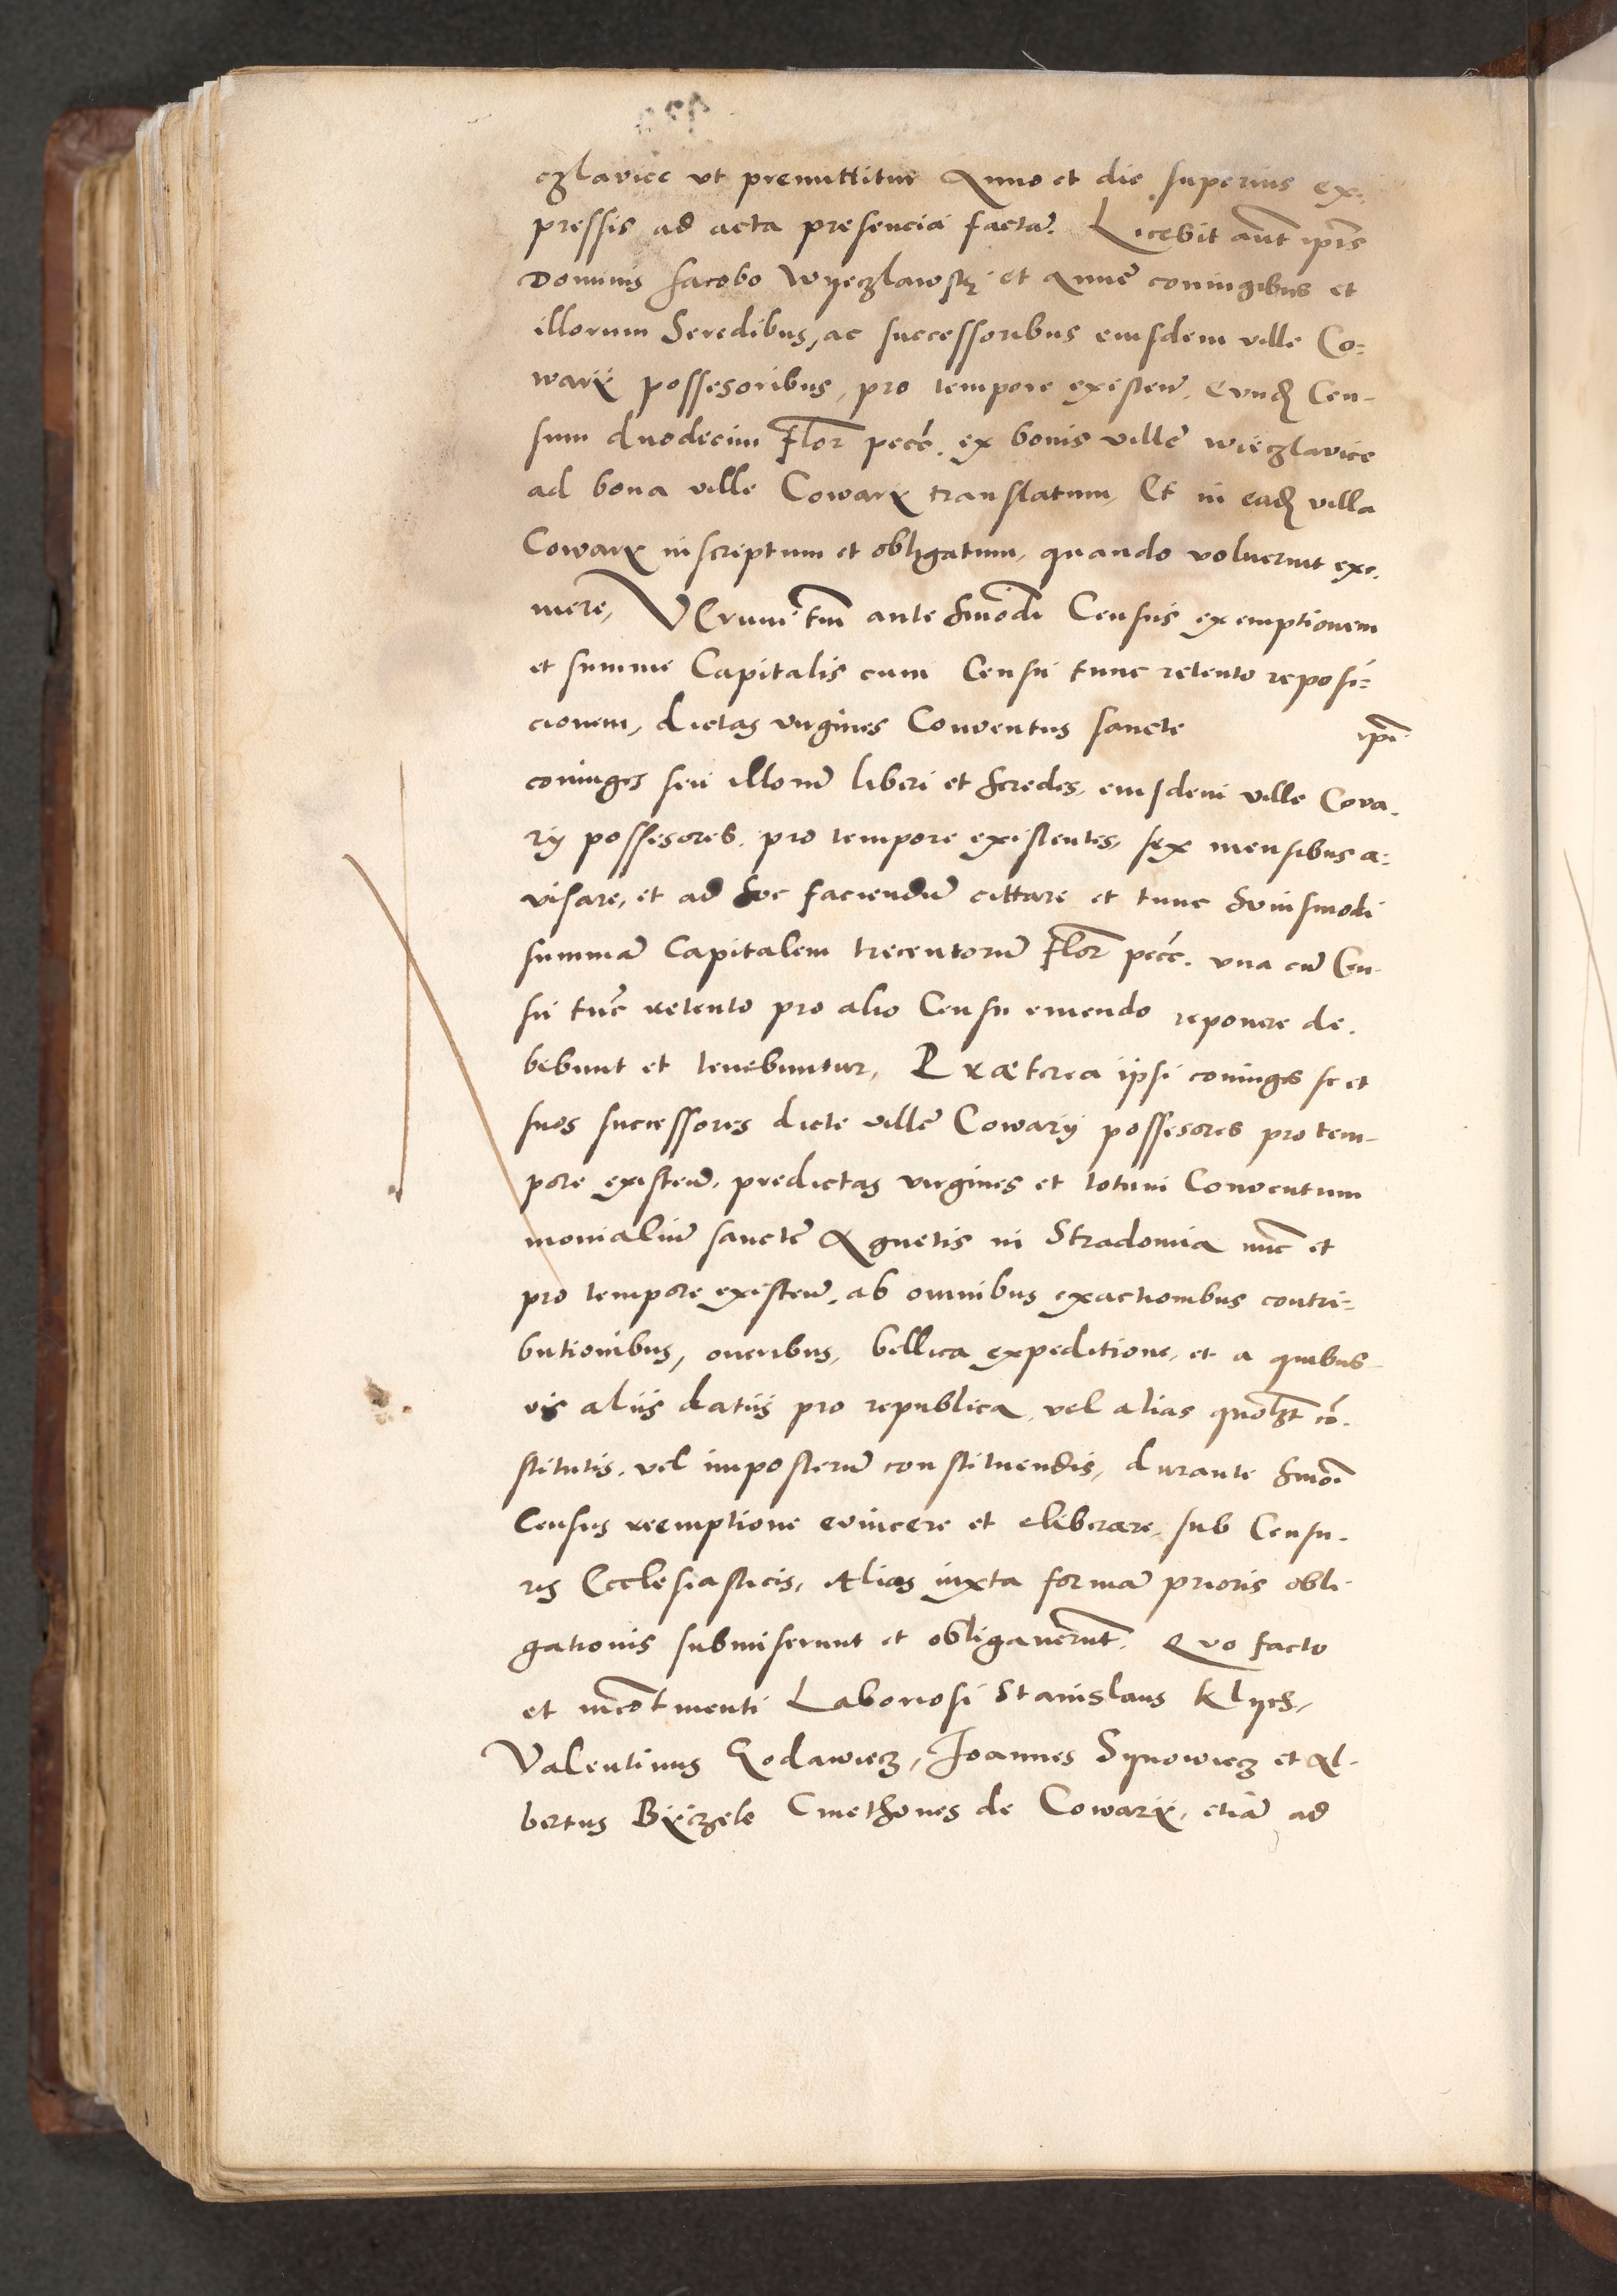 czlavicc vt premittitur Anno et die superius ex-
pressis ad acta presencia factã. Licebit aũt ip̃is
Dominis Jacobo Wyeczlawsky et Anne coniugibus et
illorum heredibus, ac successoribus eiusdem ville Co=
warÿ possesoribus, pro tempore existeñ. Eundẽ Cen-
sum duodecim Flor̃ pecẽ. ex bonis ville wieczlavice
ad bona ville Cowarÿ translatum, Et in eadẽ villa
Cowarÿ inscriptum et obligatum, quando voluerint exi-
mere, VErum tm̃ ante hmõdi Census exemptionem
et summe Capitalis cum Censu tunc retento reposi=
cionem, dictas virgines Conventus sancte ip̃i
coniuges seu illorũ liberi et heredes, eiusdem ville Cova-
rÿ possesores. pro tempore existentes, sex mensibus a=
visare, et ad hoc faciendũ cittare et tunc huiusmodi
summã Capitalem trecentorũ Flor̃ pecẽ. vna cũ Cen-
su tũc retento pro alio Censu emendo reponere de-
bebunt et tenebuntur, Præterea ipsi coniuges se et
suos successores dicte ville Cowarÿ possesores pro tem-
pore existeñ. predictas virgines et totum Conventum
monialiũ sancte Agnetis in Stradomia nũc et
pro tempore existeñ. ab omnibus exactionibus contri=
butionibus, oneribus, bellica expeditione, et a quibus-
vis aliis datiis pro republica, vel alias quolz̃t cõ-
stitutis. vel imposterũ constituendis, durante hmõi
Census reemptione evincere et eliberare, sub Censu-
ris Ecclesiasticis, Alias iuxta formã prioris obli-
gationis submiserunt et obligaverũt. Quo facto
et incõtinenti Laboriosi Stanislaus Klych,
Valentinus Rodawiecz, Joannes Synowiecz et Al-
bertus Byczele Cmethones de Cowarÿ, etiã ad